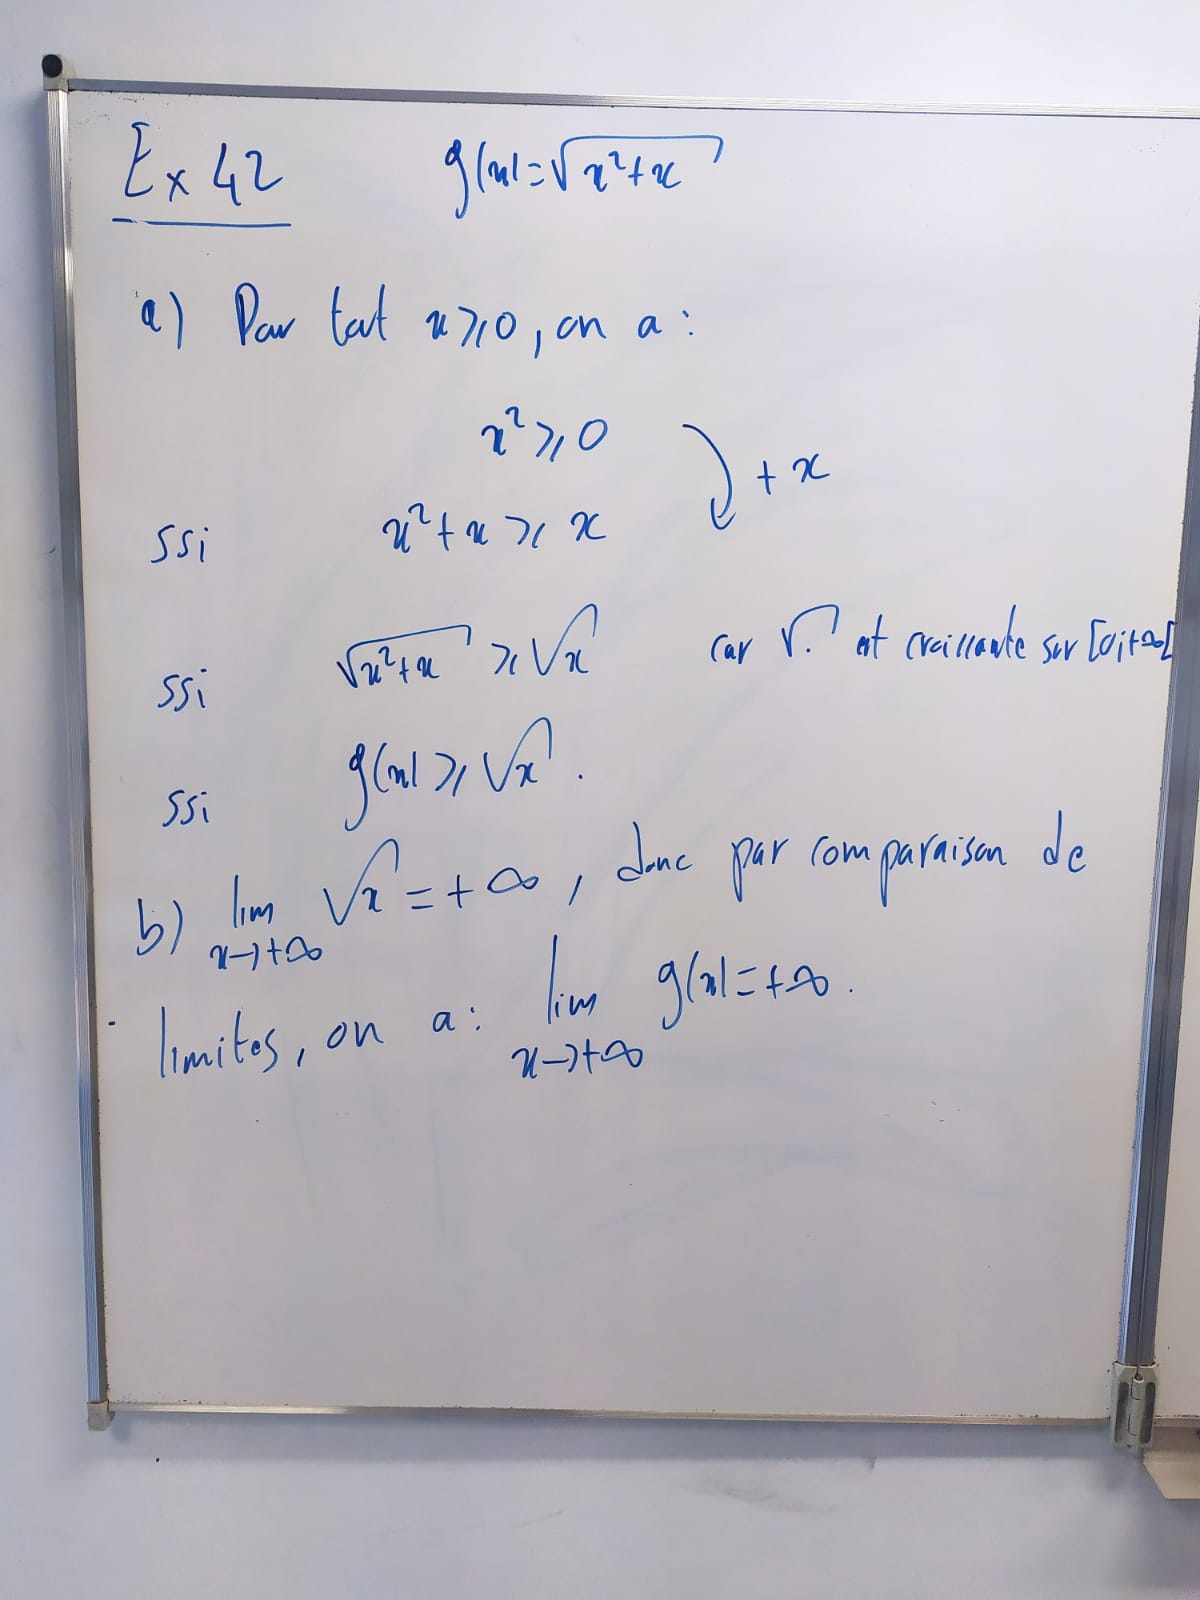 Ex 42 g(x)=√(x²+x)
a) Pour tout x⩾0, on a :
x² ⩾ 0
+ x
ssi x²+x ⩾ x
ssi √(x²+x) ⩾ √x car √. est croissante sur [0;+∞[
ssi g(x) ⩾ √x.
b) lim x→+∞ √x = +∞, donc par comparaison de
limites, on a : lim x→+∞ g(x)=+∞.